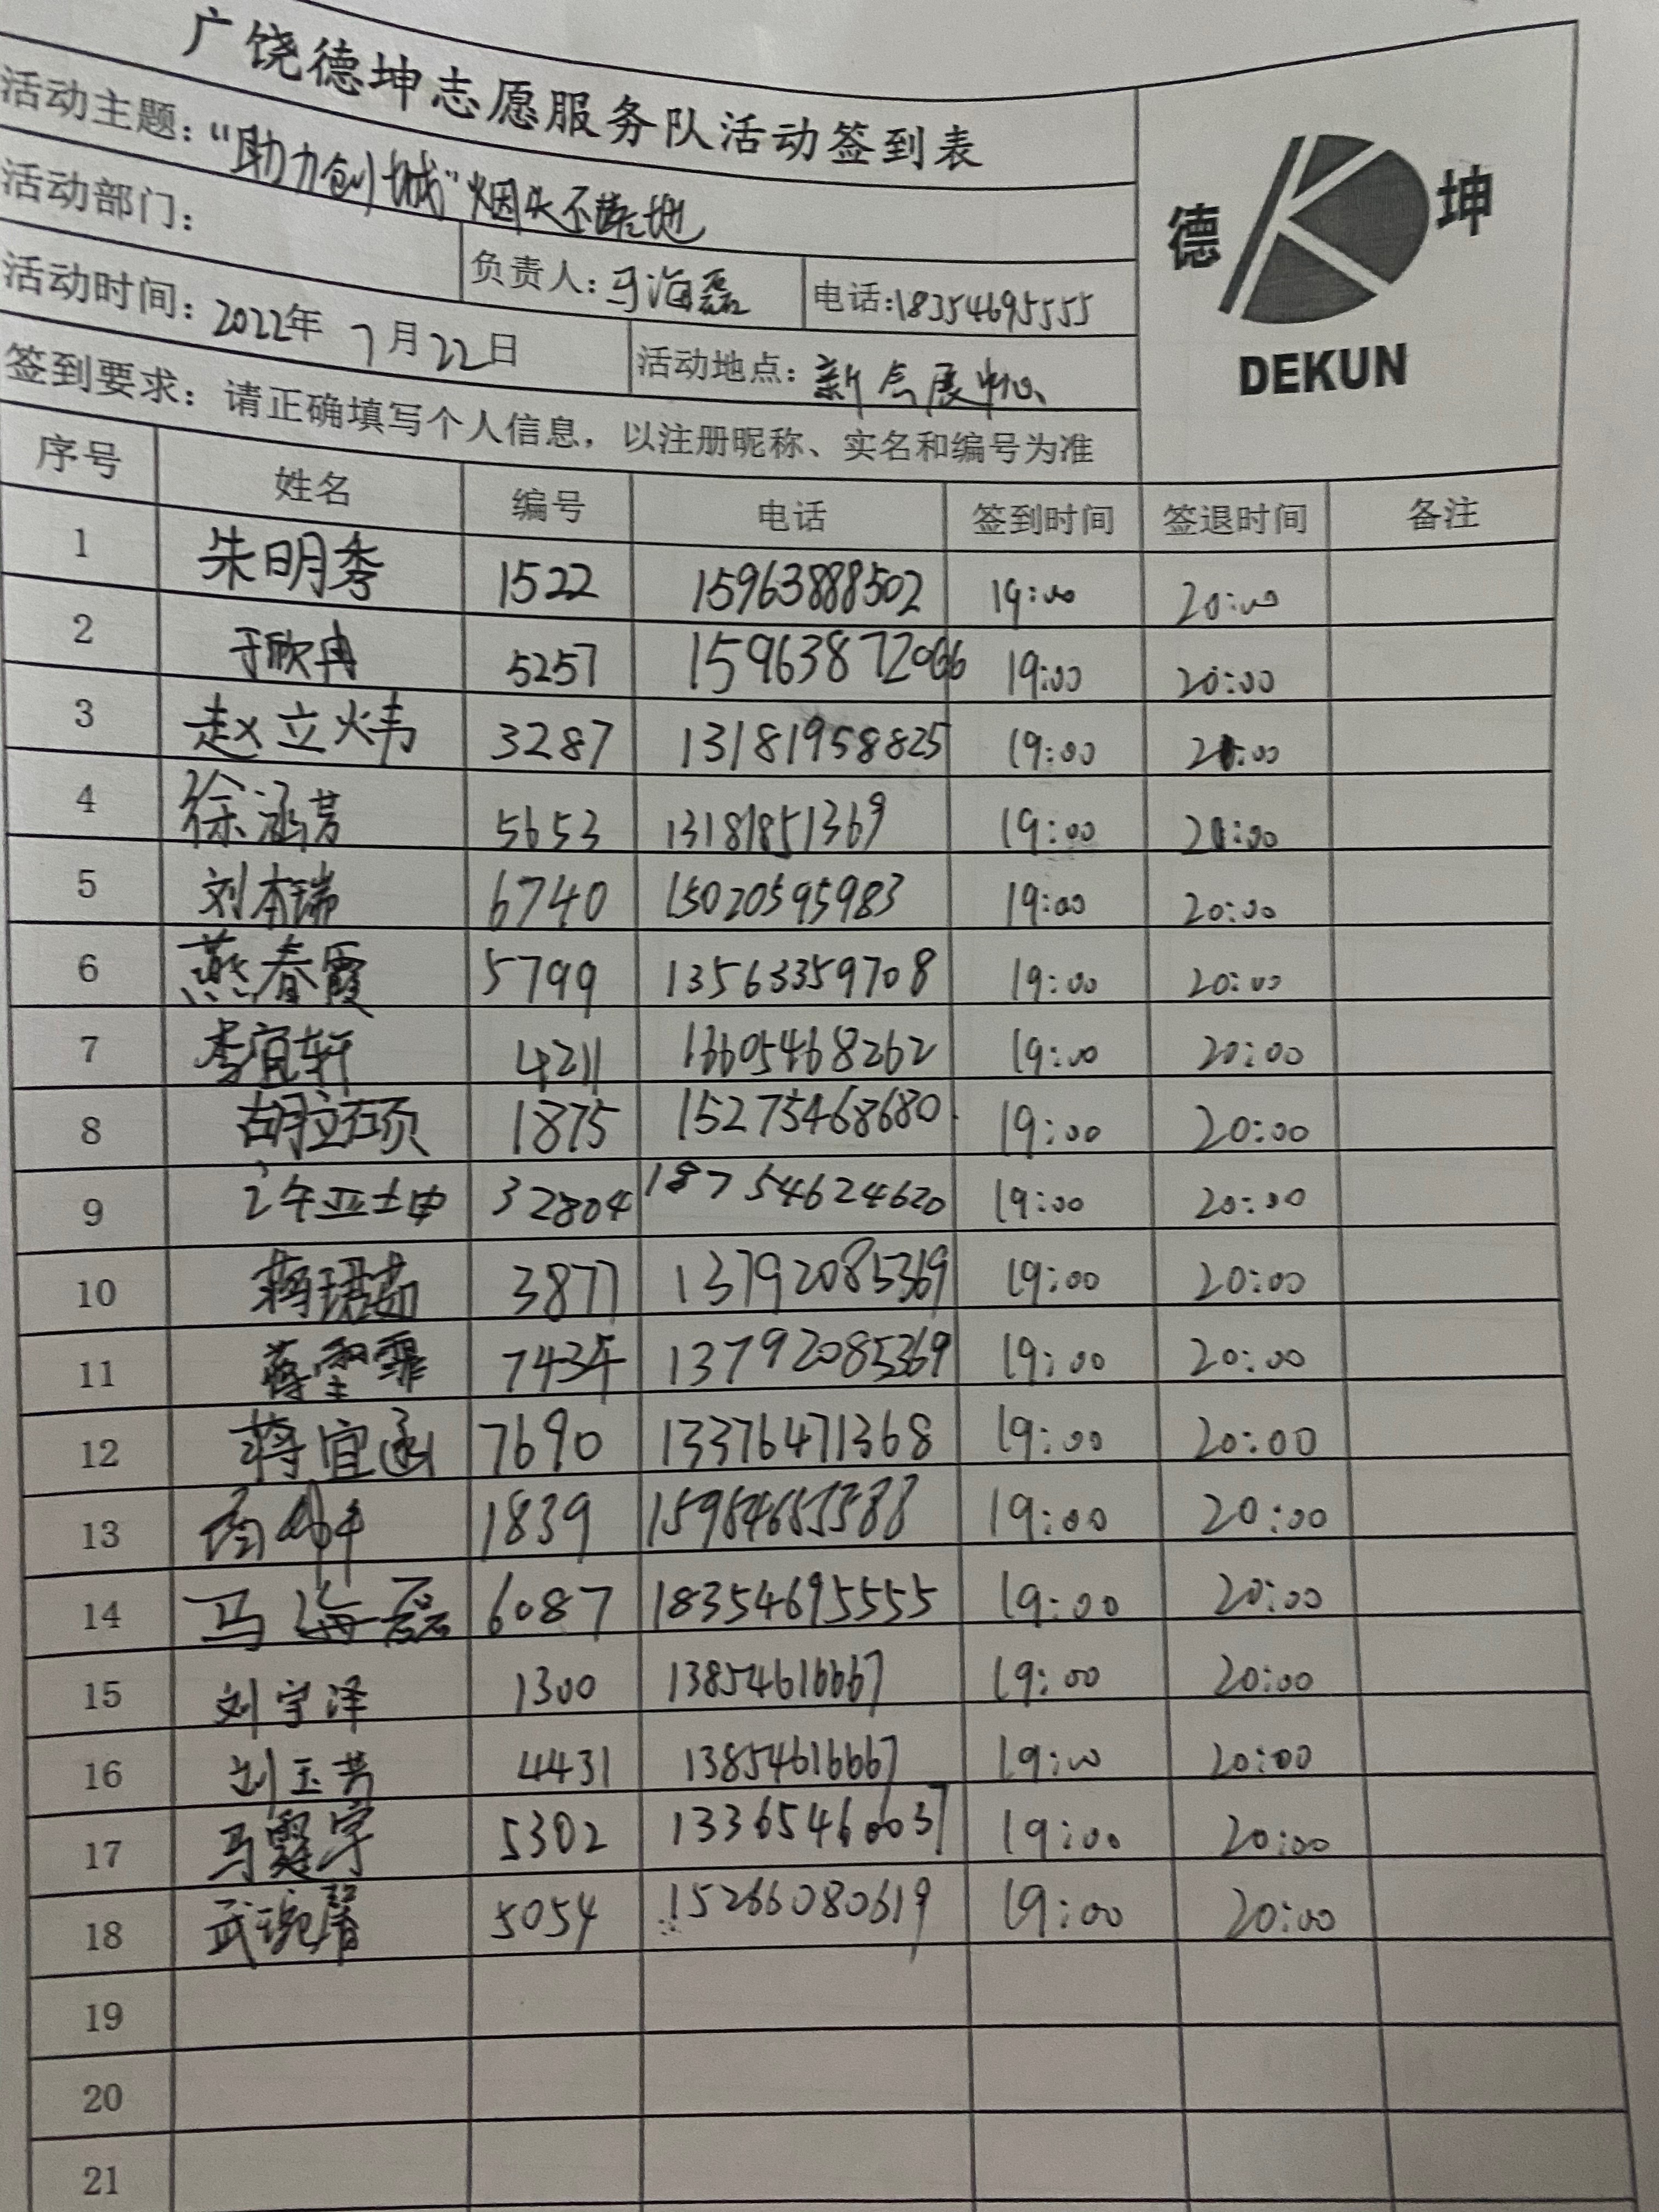 广饶德坤志愿服务队活动签到表
活动主题：“助力创城”烟头不落地
德 坤
DEKUN
活动部门：
负责人：马海磊 电话：18354695555
活动时间：2022年 7月22日 活动地点：新会展中心
签到要求：请正确填写个人信息，以注册昵称、实名和编号为准
序号 姓名 编号 电话 签到时间 签退时间 备注
1 朱明秀 1522 15963888502 19:00 20:00
2 于欣冉 5257 15963872066 19:00 20:00
3 赵立炜 3287 13181958825 19:00 20:00
4 徐涵芳 5653 13181851369 19:00 20:00
5 刘本瑞 6740 15020595983 19:00 20:00
6 燕春霞 5799 13563359708 19:00 20:00
7 李宜轩 4211 16605468262 19:00 20:00
8 胡立硕 1875 15275468680 19:00 20:00
9 32804 18754624620 19:00 20:00
10 蒋珺茹 3877 13792085369 19:00 20:00
11 蒋雪霏 7434 13792085369 19:00 20:00
12 蒋宜函 7690 13376471368 19:00 20:00
13 1839 15984655588 19:00 20:00
14 马海磊 6087 18354695555 19:00 20:00
15 刘宇泽 1300 13854616667 19:00 20:00
16 刘玉芳 4431 13854616667 19:00 20:00
17 马霆宇 5302 13365460037 19:00 20:00
18 武琬晴 5054 15266080619 19:00 20:00
19
20
21